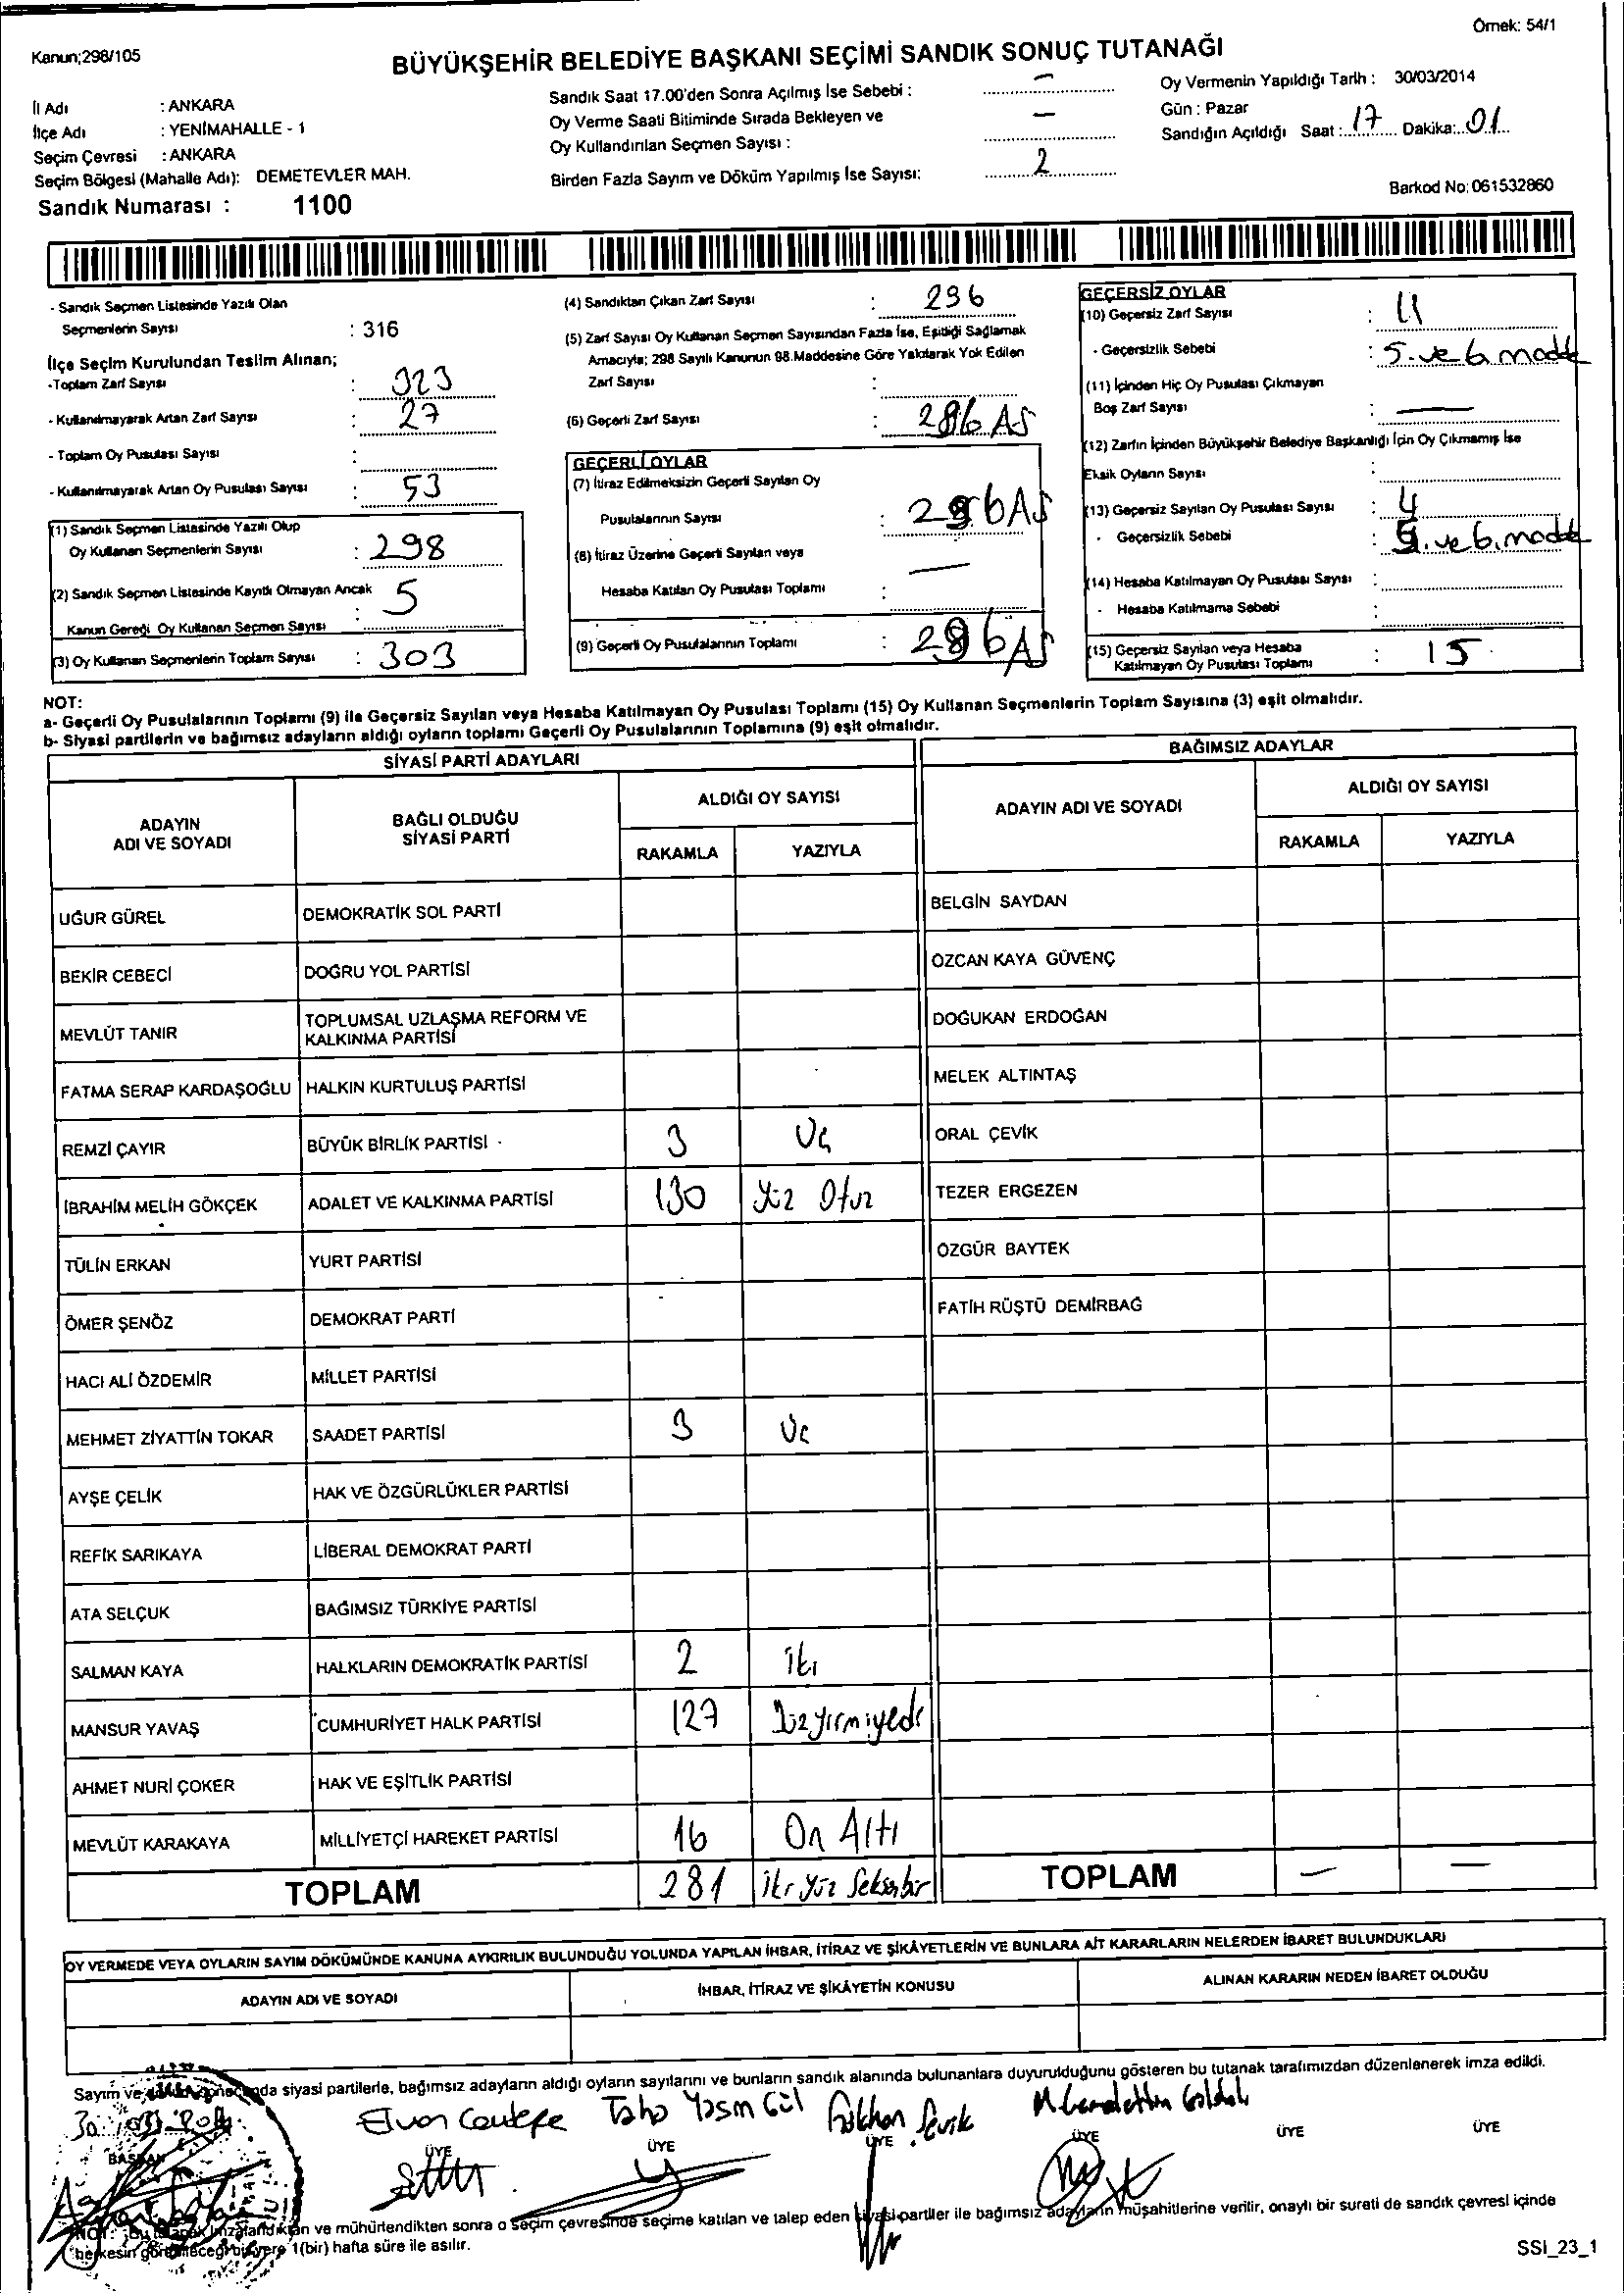 Örnek: 54/1
Kanun;298/105
BÜYÜKŞEHİR BELEDİYE BAŞKANI SEÇİMİ SANDIK SONUÇ TUTANAĞI
İl Adı : ANKARA
İlçe Adı : YENİMAHALLE - 1
Seçim Çevresi : ANKARA
Seçim Bölgesi (Mahalle Adı): DEMETEVLER MAH.
Sandık Numarası : 1100
Sandık Saat 17.00'den Sonra Açılmış İse Sebebi : —
Oy Verme Saati Bitiminde Sırada Bekleyen ve
Oy Kullandırılan Seçmen Sayısı : —
Birden Fazla Sayım ve Döküm Yapılmış İse Sayısı: 2
Oy Vermenin Yapıldığı Tarih : 30/03/2014
Gün : Pazar
Sandığın Açıldığı Saat : 17 Dakika: 01
Barkod No: 061532860
- Sandık Seçmen Listesinde Yazılı Olan
Seçmenlerin Sayısı : 316
İlçe Seçim Kurulundan Teslim Alınan;
-Toplam Zarf Sayısı : 323
- Kullanılmayarak Artan Zarf Sayısı : 27
- Toplam Oy Pusulası Sayısı :
- Kullanılmayarak Artan Oy Pusulası Sayısı : 53
(1) Sandık Seçmen Listesinde Yazılı Olup
Oy Kullanan Seçmenlerin Sayısı : 298
(2) Sandık Seçmen Listesinde Kayıtlı Olmayan Ancak
Kanun Gereği Oy Kullanan Seçmen Sayısı : 5
(3) Oy Kullanan Seçmenlerin Toplam Sayısı : 303
(4) Sandıktan Çıkan Zarf Sayısı : 296
(5) Zarf Sayısı Oy Kullanan Seçmen Sayısından Fazla İse, Eşitliği Sağlamak
Amacıyla; 298 Sayılı Kanunun 98.Maddesine Göre Yakılarak Yok Edilen
Zarf Sayısı :
(6) Geçerli Zarf Sayısı : 286
GEÇERLİ OYLAR
(7) İtiraz Edilmeksizin Geçerli Sayılan Oy
Pusulalarının Sayısı :
(8) İtiraz Üzerine Geçerli Sayılan veya
Hesaba Katılan Oy Pusulası Toplamı : —
(9) Geçerli Oy Pusulalarının Toplamı :
GEÇERSİZ OYLAR
(10) Geçersiz Zarf Sayısı : 11
- Geçersizlik Sebebi : 5. ve 6. madde
(11) İçinden Hiç Oy Pusulası Çıkmayan
Boş Zarf Sayısı : —
(12) Zarfın İçinden Büyükşehir Belediye Başkanlığı İçin Oy Çıkmamış İse
Eksik Oyların Sayısı :
(13) Geçersiz Sayılan Oy Pusulası Sayısı : 4
- Geçersizlik Sebebi : 5. ve 6. madde
(14) Hesaba Katılmayan Oy Pusulası Sayısı :
- Hesaba Katılmama Sebebi :
(15) Geçersiz Sayılan veya Hesaba
Katılmayan Oy Pusulası Toplamı : 15
NOT:
a- Geçerli Oy Pusulalarının Toplamı (9) ile Geçersiz Sayılan veya Hesaba Katılmayan Oy Pusulası Toplamı (15) Oy Kullanan Seçmenlerin Toplam Sayısına (3) eşit olmalıdır.
b- Siyasi partilerin ve bağımsız adayların aldığı oyların toplamı Geçerli Oy Pusulalarının Toplamına (9) eşit olmalıdır.
SİYASİ PARTİ ADAYLARI
ADAYIN ADI VE SOYADI
BAĞLI OLDUĞU SİYASİ PARTİ
ALDIĞI OY SAYISI
RAKAMLA YAZIYLA
UĞUR GÜREL DEMOKRATİK SOL PARTİ
BEKİR CEBECİ DOĞRU YOL PARTİSİ
MEVLÜT TANIR TOPLUMSAL UZLAŞMA REFORM VE KALKINMA PARTİSİ
FATMA SERAP KARDAŞOĞLU HALKIN KURTULUŞ PARTİSİ
REMZİ ÇAYIR BÜYÜK BİRLİK PARTİSİ 3 Üç
İBRAHİM MELİH GÖKÇEK ADALET VE KALKINMA PARTİSİ 130 Yüz Otuz
TÜLİN ERKAN YURT PARTİSİ
ÖMER ŞENÖZ DEMOKRAT PARTİ
HACI ALİ ÖZDEMİR MİLLET PARTİSİ
MEHMET ZİYATTİN TOKAR SAADET PARTİSİ 3 Üç
AYŞE ÇELİK HAK VE ÖZGÜRLÜKLER PARTİSİ
REFİK SARIKAYA LİBERAL DEMOKRAT PARTİ
ATA SELÇUK BAĞIMSIZ TÜRKİYE PARTİSİ
SALMAN KAYA HALKLARIN DEMOKRATİK PARTİSİ 2 İki
MANSUR YAVAŞ CUMHURİYET HALK PARTİSİ 127 Yüzyirmiyedi
AHMET NURİ ÇOKER HAK VE EŞİTLİK PARTİSİ
MEVLÜT KARAKAYA MİLLİYETÇİ HAREKET PARTİSİ 16 On Altı
TOPLAM 281 iki yüz Seksenbir
BAĞIMSIZ ADAYLAR
ADAYIN ADI VE SOYADI
ALDIĞI OY SAYISI
RAKAMLA YAZIYLA
BELGİN SAYDAN
ÖZCAN KAYA GÜVENÇ
DOĞUKAN ERDOĞAN
MELEK ALTINTAŞ
ORAL ÇEVİK
TEZER ERGEZEN
ÖZGÜR BAYTEK
FATİH RÜŞTÜ DEMİRBAĞ
TOPLAM — —
OY VERMEDE VEYA OYLARIN SAYIM DÖKÜMÜNDE KANUNA AYKIRILIK BULUNDUĞU YOLUNDA YAPILAN İHBAR, İTİRAZ VE ŞİKÂYETLERİN VE BUNLARA AİT KARARLARIN NELERDEN İBARET BULUNDUKLARI
ADAYIN ADI VE SOYADI
İHBAR, İTİRAZ VE ŞİKÂYETİN KONUSU
ALINAN KARARIN NEDEN İBARET OLDUĞU
Sayım ve siyasi partilerle, bağımsız adayların aldığı oyların sayılarını ve bunların sandık alanında bulunanlara duyurulduğunu gösteren bu tutanak tarafımızdan düzenlenerek imza edildi.
Taha Yasin Gül
Gökhan
BAŞKAN ÜYE ÜYE ÜYE ÜYE ÜYE ÜYE
NOT: Bu tutanak imzalandıktan ve mühürlendikten sonra o seçim çevresinde seçime katılan ve talep eden siyasi partiler ile bağımsız adayların müşahitlerine verilir, onaylı bir sureti de sandık çevresi içinde
herkesin görebileceği bir yere 1(bir) hafta süre ile asılır.
SSI_23_1